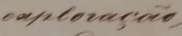 exploração,